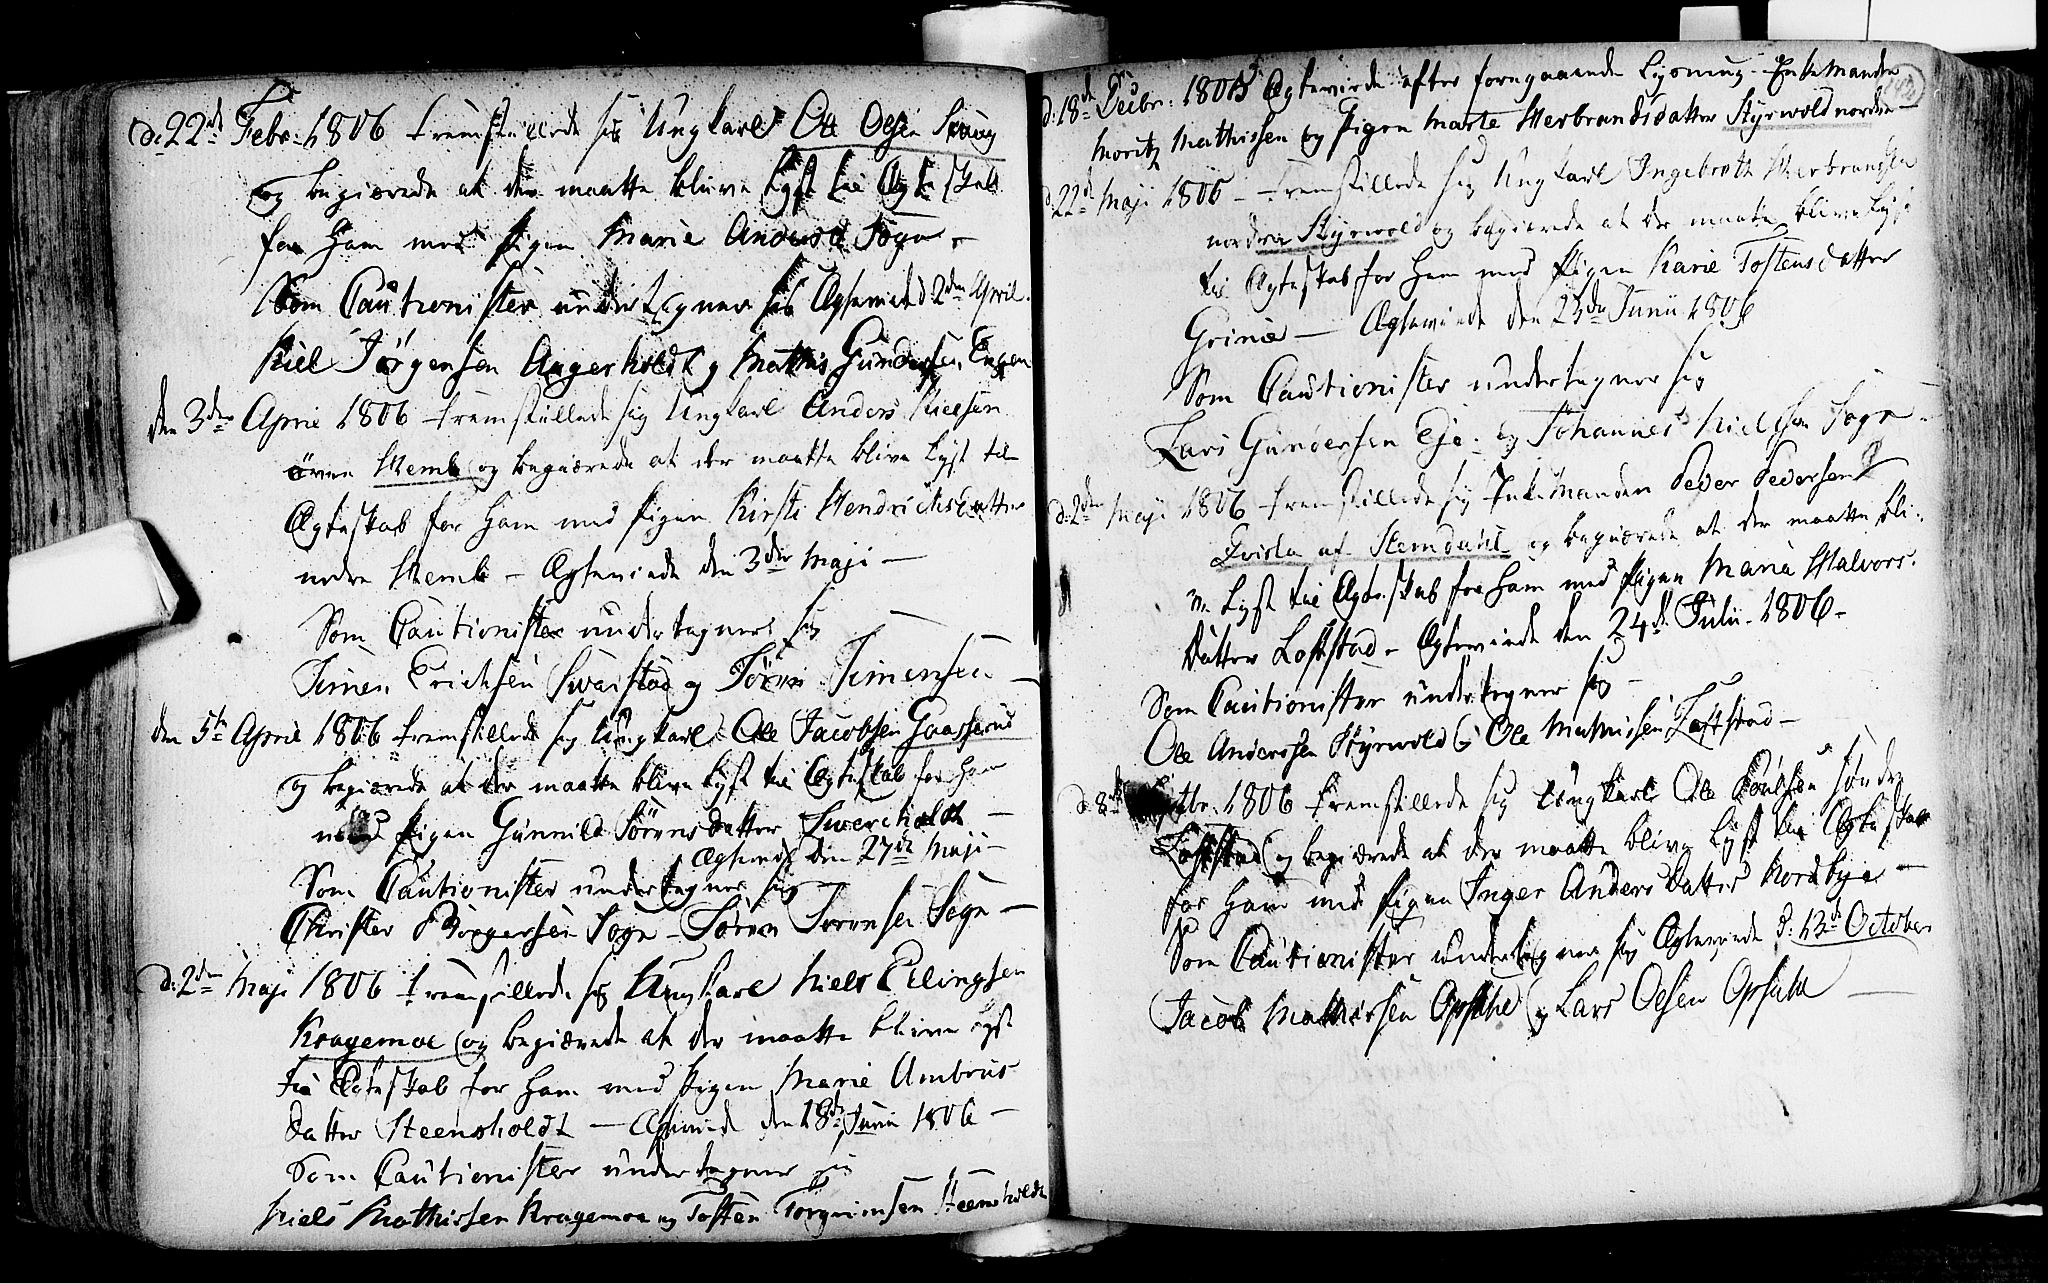 d: 22de Febr: 1806 fremstillede sig Ungkarl Ole Olsen Skaug
og begiærede at der maatte blive lyst til Ægteskab
for ham med Pigen Marie Andersd Sogn –
Som Cautionister undertegner sig Ægteviede d 2den April.
Niel Jörgensen Aagerholdt og Mathis Gundersen Engen
den 3de April 1806 fremstillede sig Ungkarl Anders Nielsen
övre Hemb og begiærede at der maatte blive lyst til
Ægteskab for ham med Pigen Kirsti Hendrichsdatter
nedre Hemb – Ægteviede den 3die Maji –
Som Cautionister undertegner sig
Simen Erichsen Svarstad og Sören Simensen –
den 5te April 1806 fremstillede sig Ungkarl Ole Jacobsen Gaasserud
og begiærede at der maatte blive lyst til Ægteskab for ham
med Pigen Gunnild Sörensdatter Svereholdt –
Ægteviede den 27de Maji –
Som Cautionister undertegner sig
Christer Börgersen Sogn – Sören Sörensen Sogn –
d: 2den Maji 1806 fremstillede sig Ungkarl Niels Ellingsen
Kragemoe og begiærede at der maatte blive lyst
til Ægteskab for ham med Pigen Marie Umbrus
datter Steensholdt – Ægteviede den 18de Junii 1806 –
Som Cautionister undertegner sig
Niels Mathissen Kragemoe og Tosten Torgrimsen Steensholdt
d: 18de Decbr: 1805 Ægteviede efter foregaaende Lysning – Enkemanden
Moritz Mathissen og Pigen Marte Herbrandsdatter Styrvold nordre –
d: 22de Maji 1806 – fremstillede sig Ungkarl Ingebreth Herbrandsen
nordre Styrvold og begiærede at der maatte blive lyst
til Ægteskab for ham med Pigen Karie Tostensdatter
Grinie – Ægteviede den 23de Junii 1806
Som Cautionister undertegner sig
Lars Gundersen Eje. og Johannes Nielsen Sogn –
d: 2den Maji 1806 fremstillede sig Enkemanden Peder Pedersen
af Hemdahl og begiærede at der maatte bli:
ve lyst til Ægteskab for ham med Pigen Maria Halvors.
Datter Loftstad – Ægteviede den 24de Julii – 1806 –
Som Cautionister undertegner sig –
Ole Anderssen Styrvold og Ole Mathissen Loftstad –
d: 8de 1806 fremstillede sig Ungkarl Ole Povelsen söndre
Loftstad og begiærede at der maatte blive lyst til Ægteskab
for ham med Pigen Inger Anders Datter Nordbye –
Som Cautionister undertegner sig Ægteviede d: 13de October
Jacob Mathissen Opsahl og Lars Olsen Opsahl –